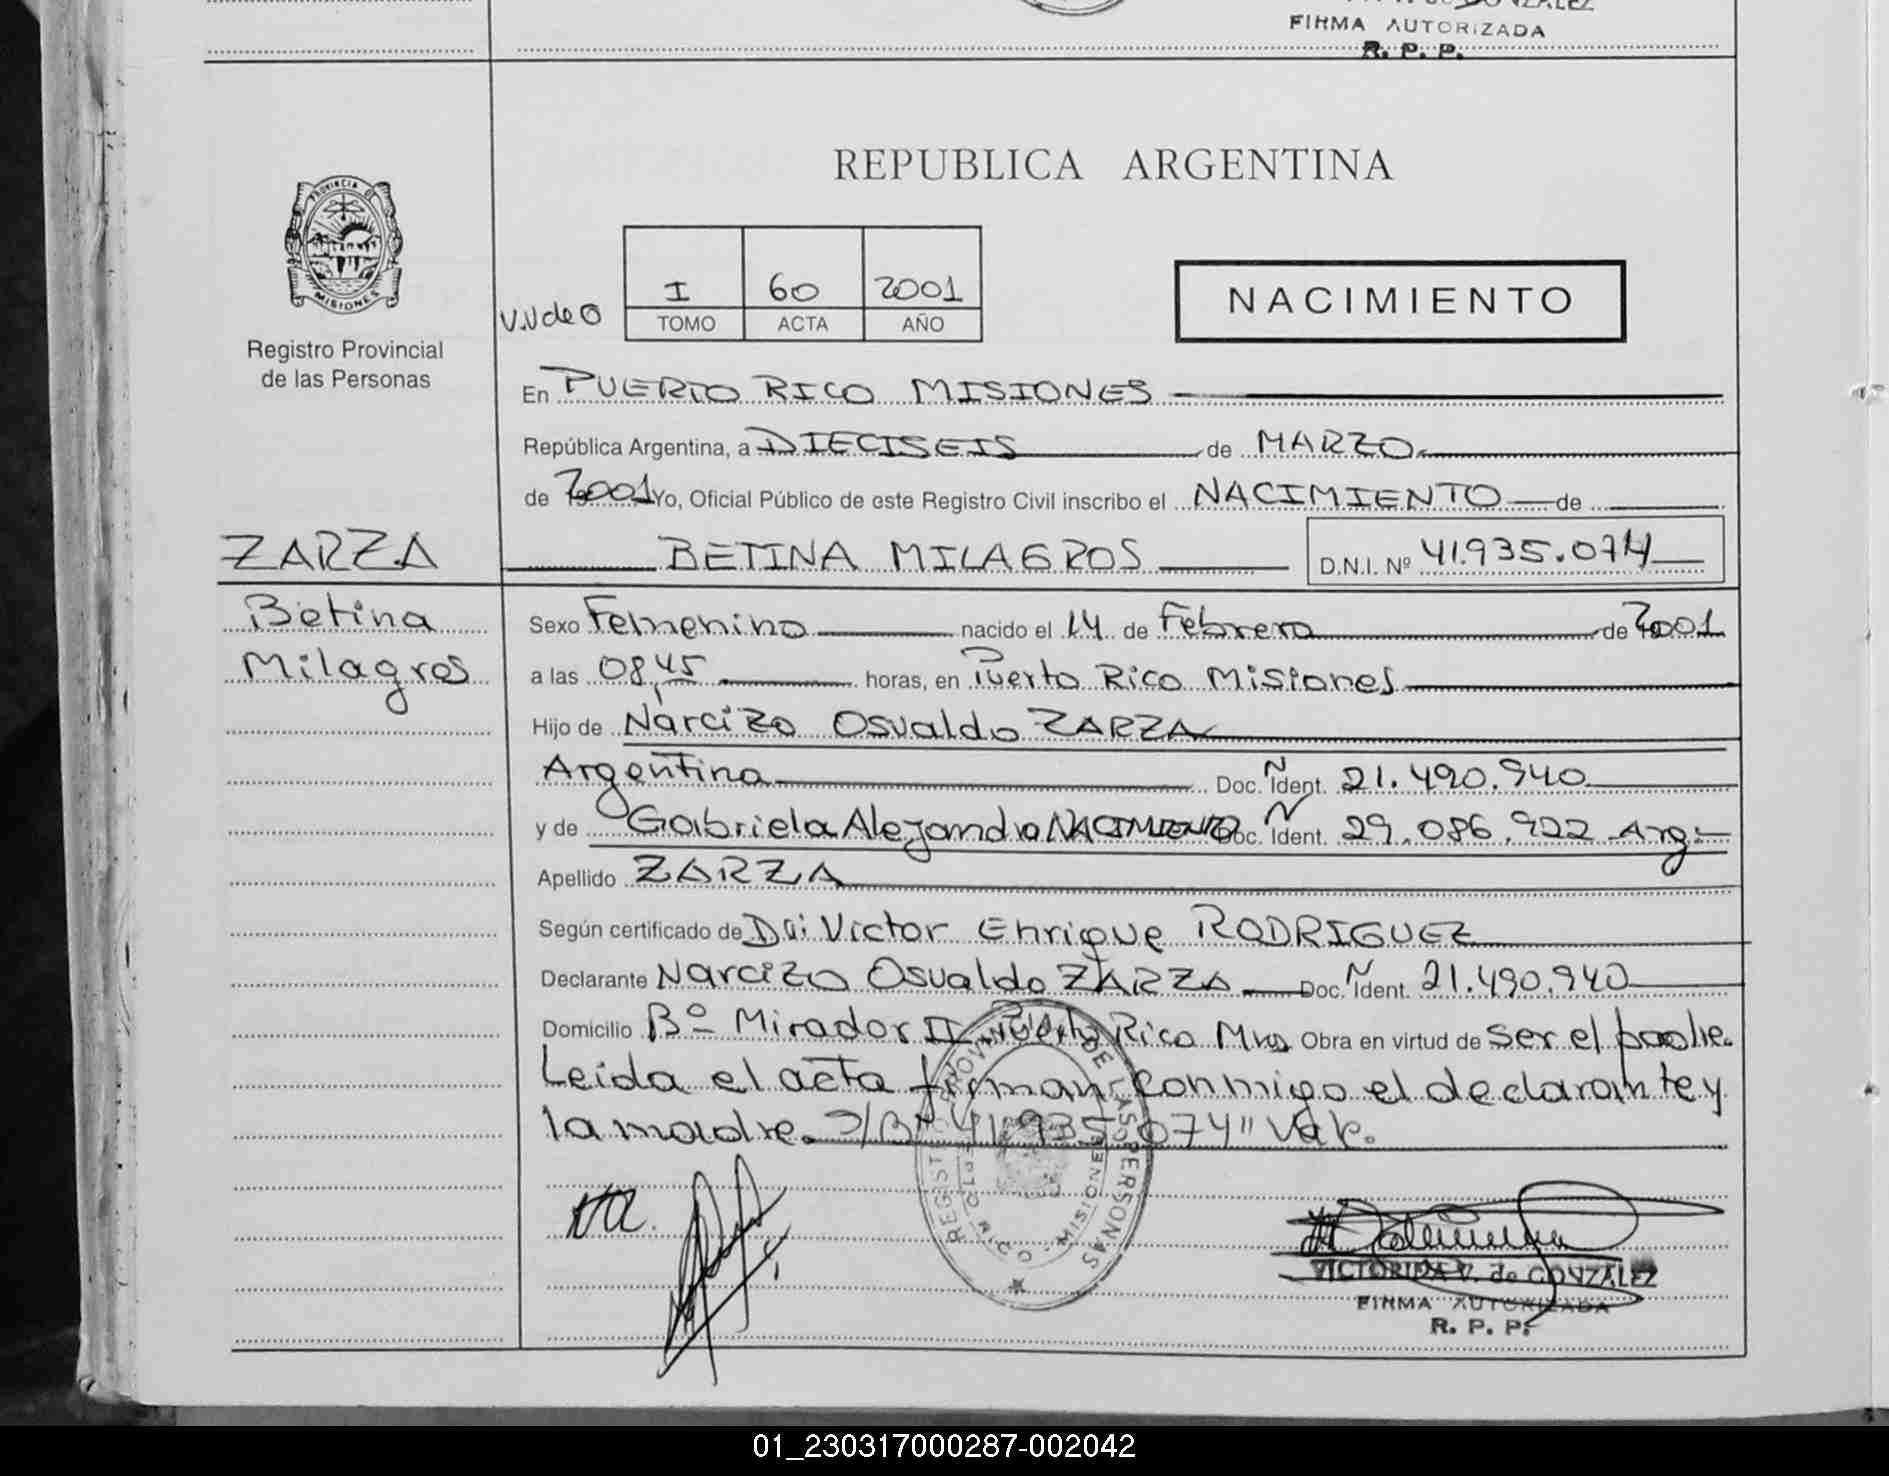 GONZALEZ
FIRMA AUTORIZADA
R. P. P.
REPUBLICA ARGENTINA
PROVINCIA DE
MISIONES
Registro Provincial
de las Personas
I 60 2001
TOMO ACTA AÑO
NACIMIENTO
En PUERTO RICO MISIONES
República Argentina, a DIECISEIS de MARZO
de 2001 Yo, Oficial Público de este Registro Civil inscribo el NACIMIENTO de
ZARZA BETINA MILAGROS D.N.I. Nº 41.935.074
Betina
Milagros
Sexo Femenino nacido el 14 de Febrero de 2001
a las 08,45 horas, en Puerto Rico Misiones
Hijo de Narcizo Osvaldo ZARZA
Argentina Doc. Ident. 21.490.940
y de Gabriela Alejandra NACIMIENTO Doc. Ident. 29.086.922 Arg.
Apellido ZARZA
Según certificado de Dr: Victor Enrique RODRIGUEZ
Declarante Narcizo Osvaldo ZARZA Doc. Ident. 21.490.940
Domicilio Bº Mirador II Puerto Rico Mns Obra en virtud de ser el padre.
Leida el acta firman conmigo el declarante y
la madre. S/Bº 41.935.074" Vale.
REGISTRO PROVINCIAL DE LAS PERSONAS
MISIONES
VICTORINA V. de GONZALEZ
FIRMA AUTORIZADA
R. P. P.
01_230317000287-002042